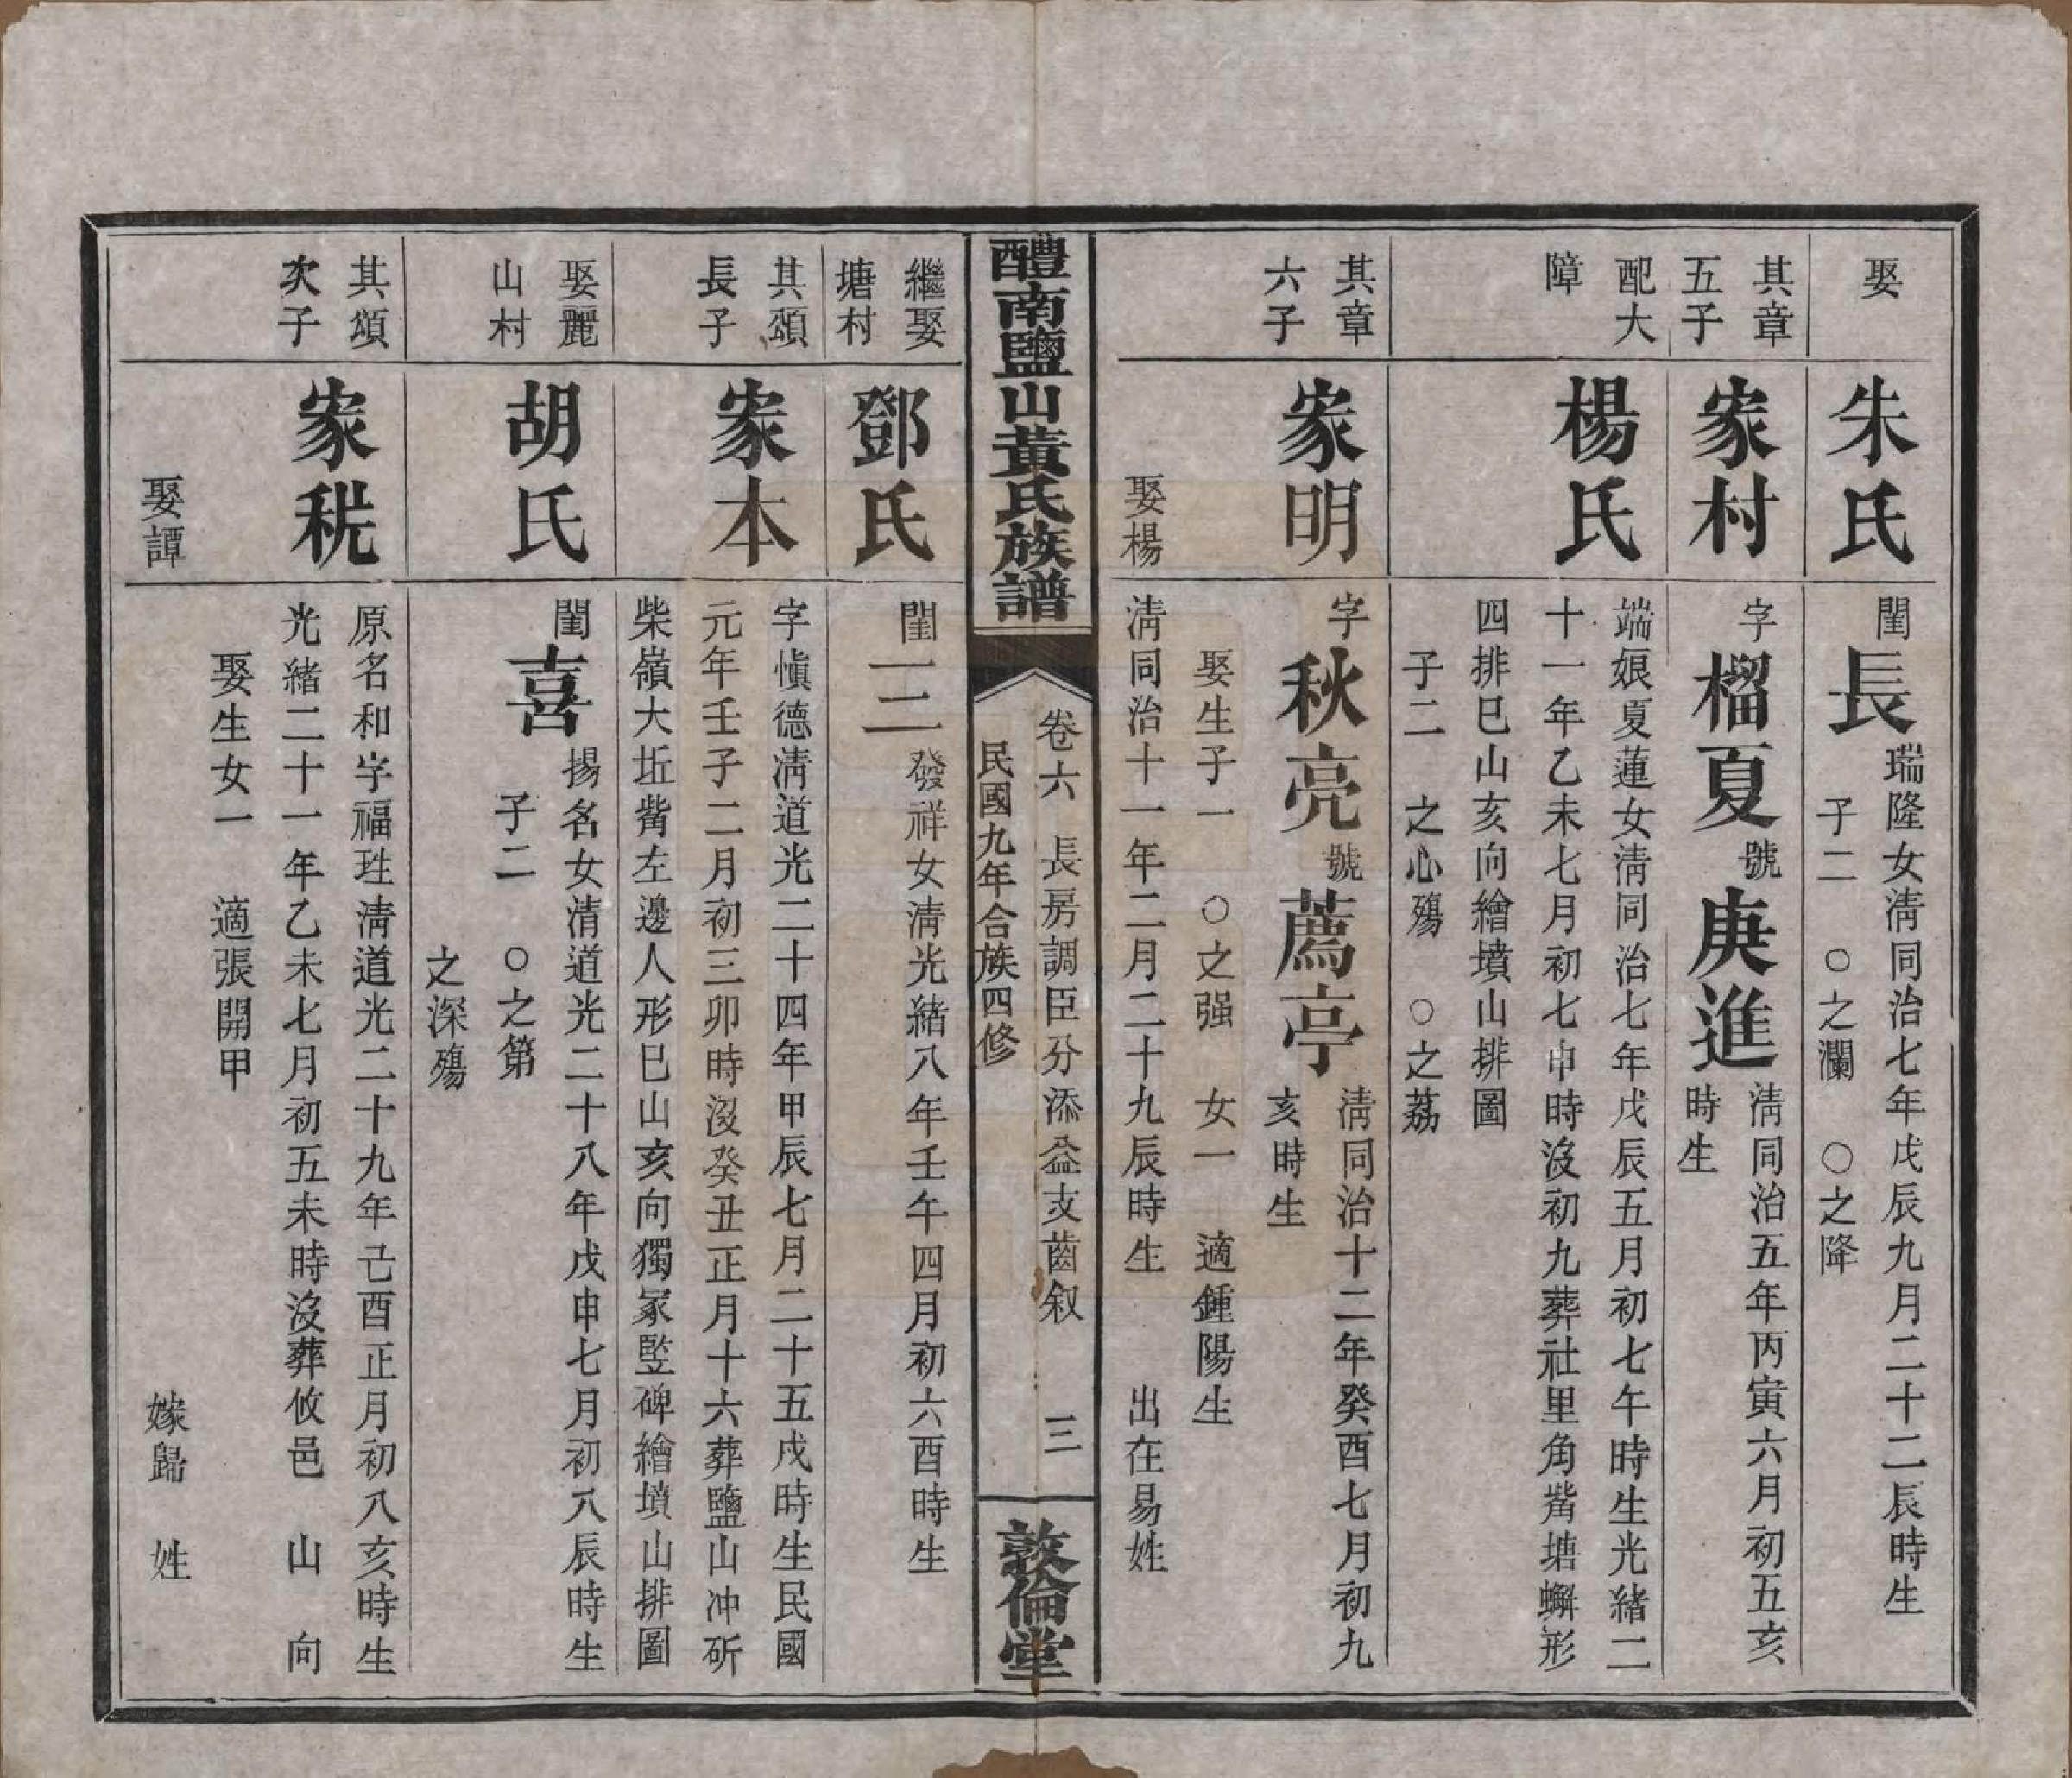 娶
朱氏
閨長
瑞隆女淸同治七年戊辰九月二十二辰時生
子二　○之瀾　○之降
其章
五子
家村
字榴夏號庚進
淸同治五年丙寅六月初五亥
時生
配大
障
楊氏
端娘夏蓮女淸同治七年戊辰五月初七午時生光緒二
十一年乙未七月初七申時沒初九葬社里角觜塘蠏形
四排巳山亥向繪墳山排圖
子二　之心殤　○之荔
其章
六子
家明
字秋亮號薦亭
淸同治十二年癸酉七月初九
亥時生
娶生子一　○之强　女一　適鍾陽生
娶楊
淸同治十一年二月二十九辰時生　出在易姓
醴南鹽山黃氏族譜
卷六　長房調臣分添益支齒叙　三
民國九年合族四修
敦倫堂
繼娶
塘村
鄧氏
閨二
發祥女淸光緒八年壬午四月初六酉時生
其頌
長子
家本
字愼德淸道光二十四年甲辰七月二十五戌時生民國
元年壬子二月初三卯時沒癸丑正月十六葬鹽山冲斫
柴嶺大坵觜左邊人形巳山亥向獨冢竪碑繪墳山排圖
娶麗
山村
胡氏
閨喜
揚名女淸道光二十八年戊申七月初八辰時生
子二　○之第
之深殤
其頌
次子
家税
原名和字福珄淸道光二十九年己酉正月初八亥時生
光緒二十一年乙未七月初五未時沒葬攸邑　山　向
娶生女一　適張開甲
娶譚
嫁歸　姓